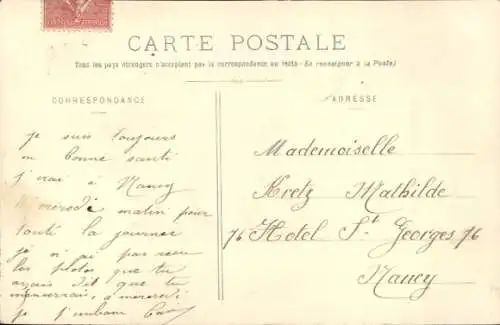 CARTE POSTALE
Tous les pays étrangers n'acceptent pas la correspondance au recto. (Se renseigner à la Poste)
CORRESPONDANCE
je suis toujours
en bonne santé
j'irai à Nancy
Mercredi matin pour
toute la journer
je n'ai pas reçu
les photos que tu
avais dit que tu
a mercredi
je
ADRESSE
Mademoiselle
Kretz Mathilde
76 Hotel St Georges 76
Nancy